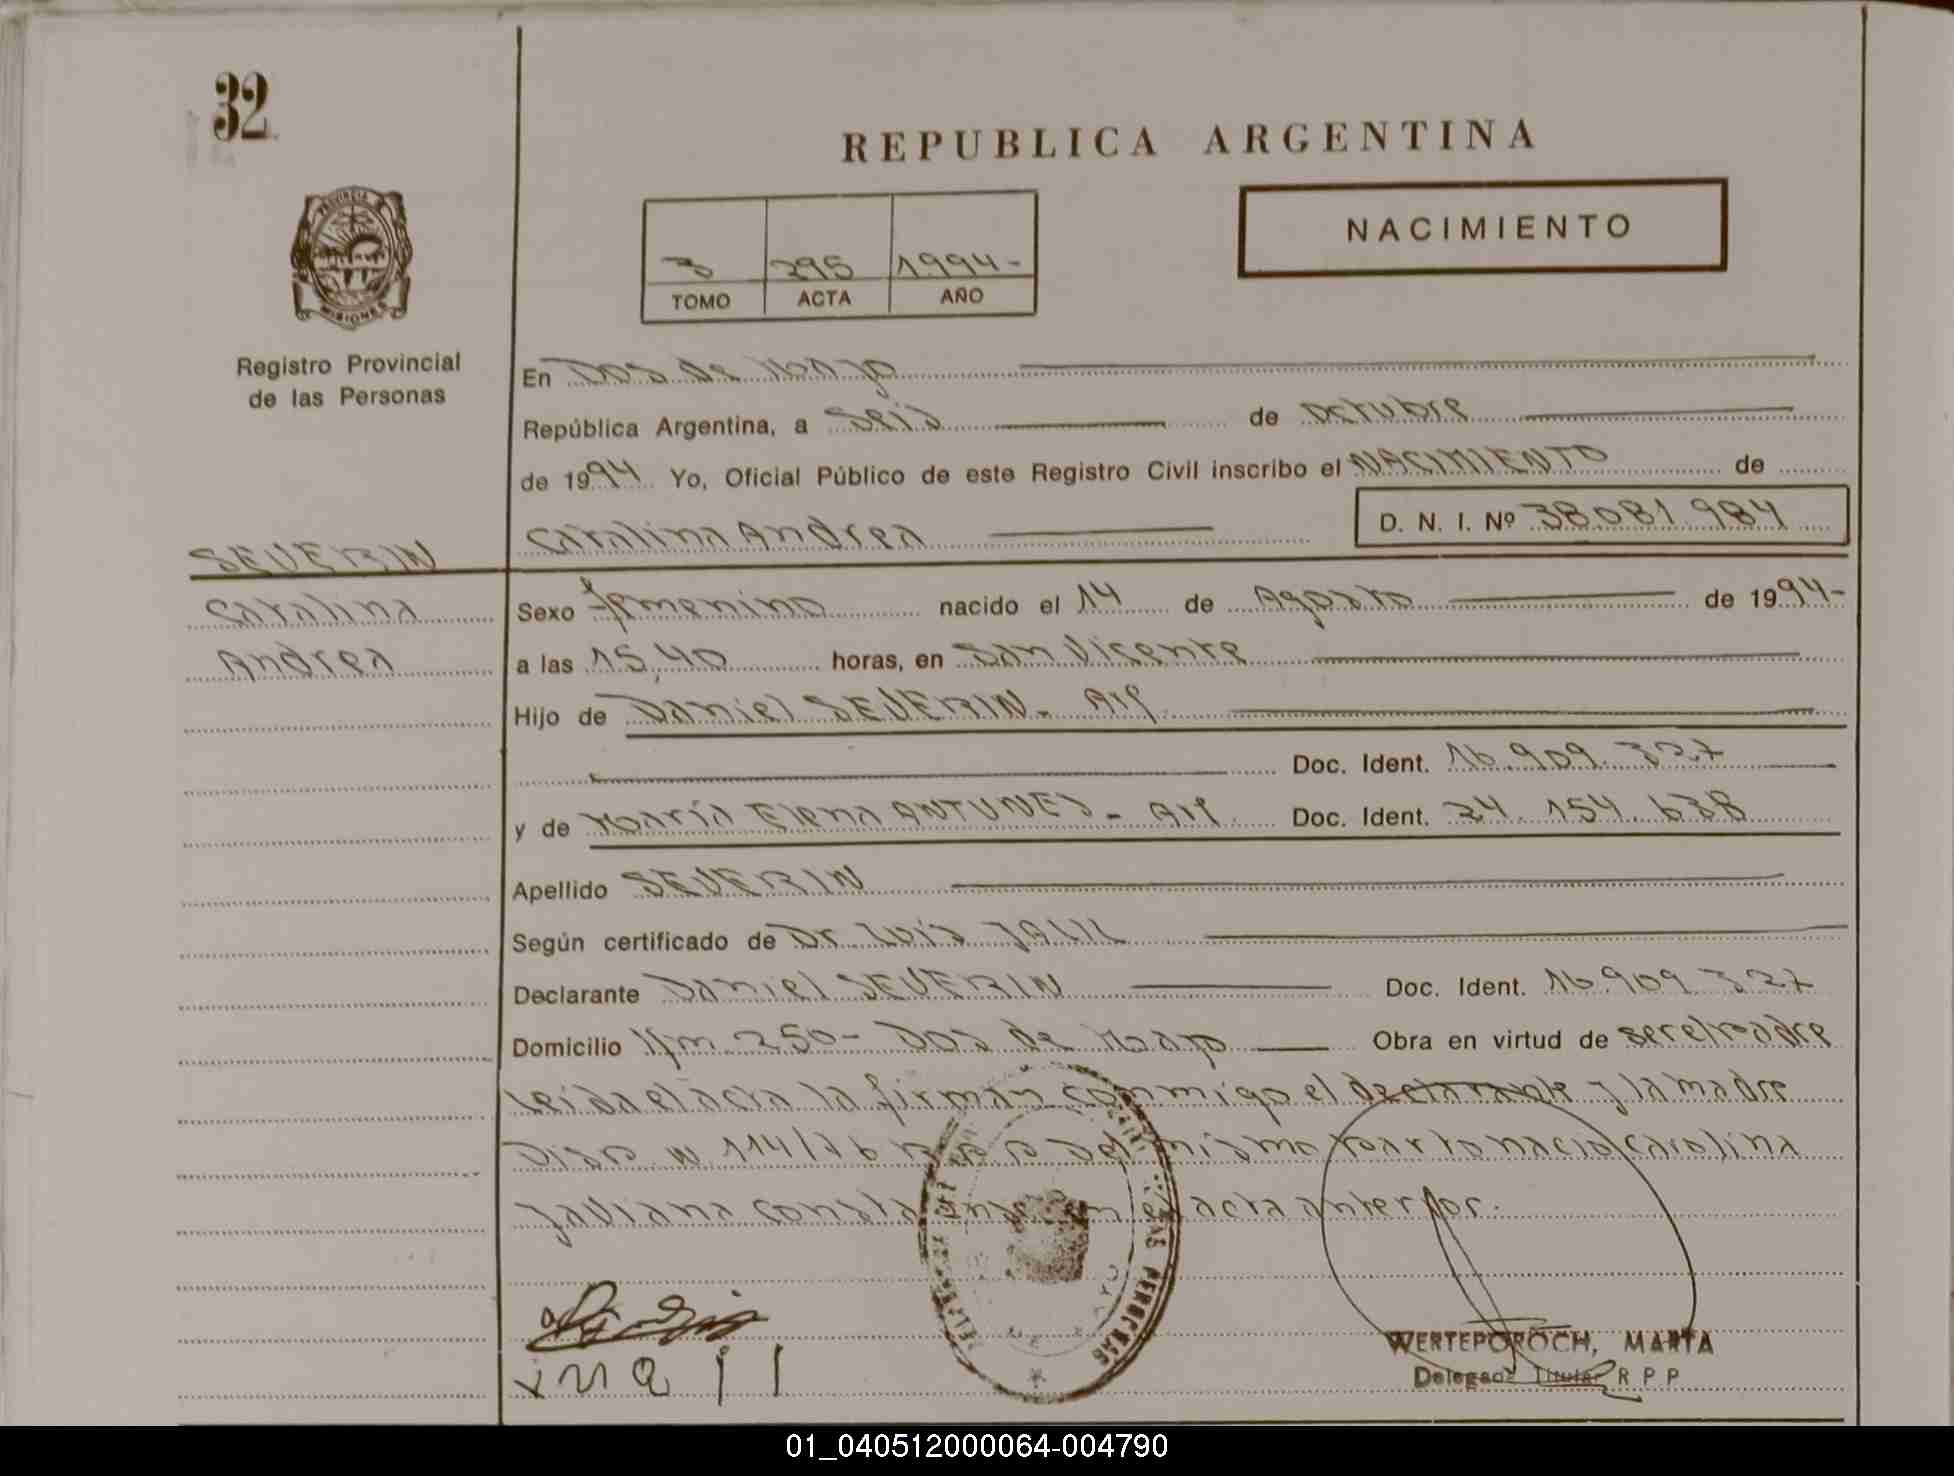 32
REPUBLICA ARGENTINA
PROVINCIA DE
MISIONES
NACIMIENTO
3 295 1994-
TOMO ACTA AÑO
Registro Provincial
de las Personas
En Dos de Mayo
República Argentina, a Seis de octubre
de 1994 Yo, Oficial Público de este Registro Civil inscribo el NACIMIENTO de
Catalina Andrea D. N. I. Nº 38.081.984
SEVERIN
Catalina
Andrea
Sexo femenino nacido el 14 de Agosto de 1994-
a las 15,40 horas, en San Vicente
Hijo de Daniel SEVERIN - Ar
Doc. Ident. 16.909.327
y de María Elena ANTUNES - Ar Doc. Ident. 24.154.638
Apellido SEVERIN
Según certificado de Dr Luis JALIL
Declarante Daniel SEVERIN Doc. Ident. 16.909.327
Domicilio Km 250 - Dos de Mayo Obra en virtud de ser el padre
Leida el acta la firman conmigo el declarante y la madre
Disp Nº 114/76 del mismo parto nacio Carolina
acta anterior.
PERSONAS
WERTEPOROCH, MARTA
Delegada Titular R P P
01_040512000064-004790